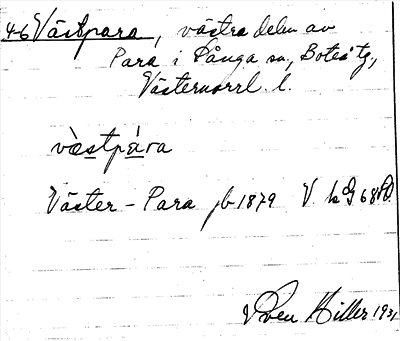 46 Västpara, västra delen av
Para i Långa sn, Boteå tg.,
Västernorrl. l.
vàstpára
Väster-Para jb 1879 V
Sven Hiller 1931